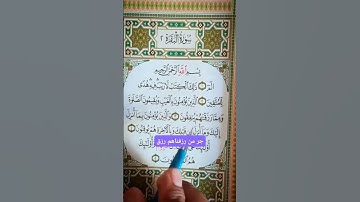 سُورَةُ الْبَقَرَةِ ٢
بِسْمِ اللَّهِ الرَّحْمَٰنِ الرَّحِيمِ
الٓمٓ ذَٰلِكَ الْكِتَابُ لَا رَيْبَ فِيهِ هُدًى
لِّلْمُتَّقِينَ الَّذِينَ يُؤْمِنُونَ بِالْغَيْبِ وَيُقِيمُونَ الصَّلَاةَ
وَمِمَّا رَزَقْنَاهُمْ يُنفِقُونَ وَالَّذِينَ يُؤْمِنُونَ بِمَا أُنزِلَ
إِلَيْكَ وَمَا أُنزِلَ قَبْلِكَ وَبِالْآخِرَةِ هُمْ يُوقِنُونَ
جر من رزقناهم رزق
هُمُ